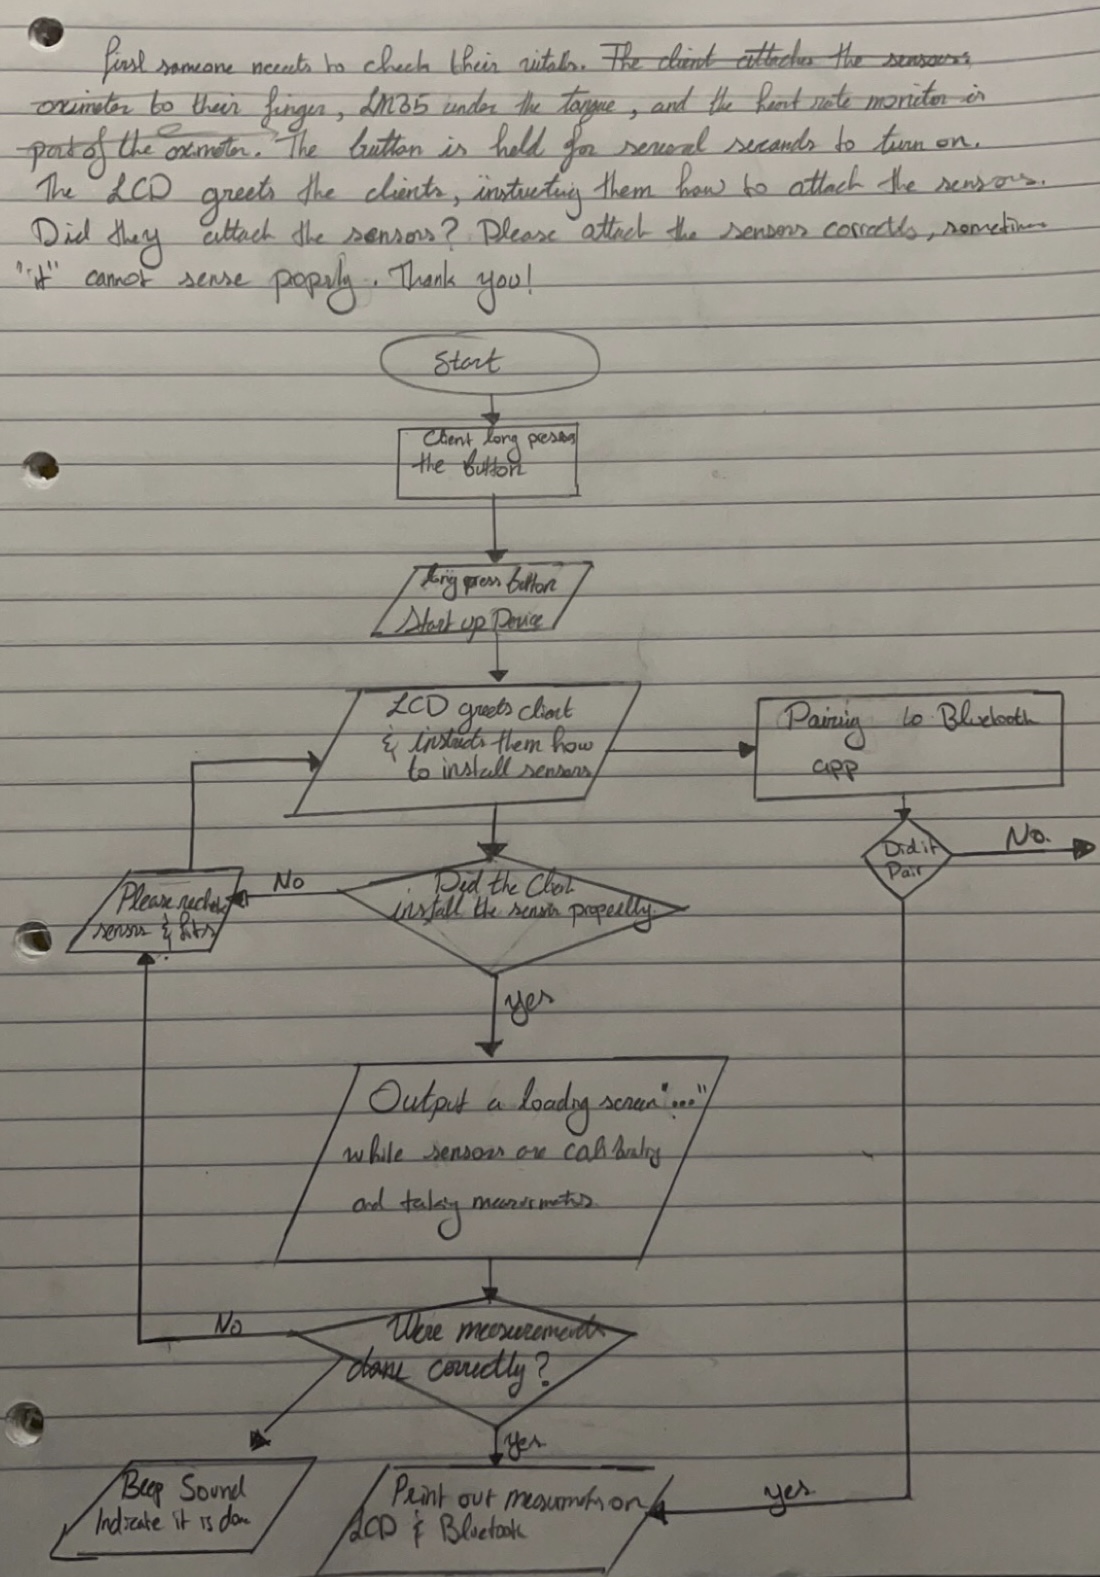 first someone needs to check their vitals. The client attaches the sensors:
oximeter to their finger, LM35 under the tongue, and the heart rate monitor is
part of the oximeter. The button is held for several seconds to turn on.
The LCD greets the clients, instructing them how to attach the sensors.
Did they attach the sensors? Please attach the sensors correctly, sometimes
"it" cannot sense poprly. Thank you!
Start
Client long presses
the button
long press button
Start up Device
LCD greets client
& instructs them how
to install sensors
Pairing to Bluetooth
app
Did it
Pair
No.
No
Please
sensors &
Did the Client
install the sensor properlly
yes
Output a loading screen "..."
while sensors are calibrating
and taking
No
Were measurements
done correctly?
yes
Beep Sound
Indicate it is done
Print out on
LCD & Bluetooth
yes